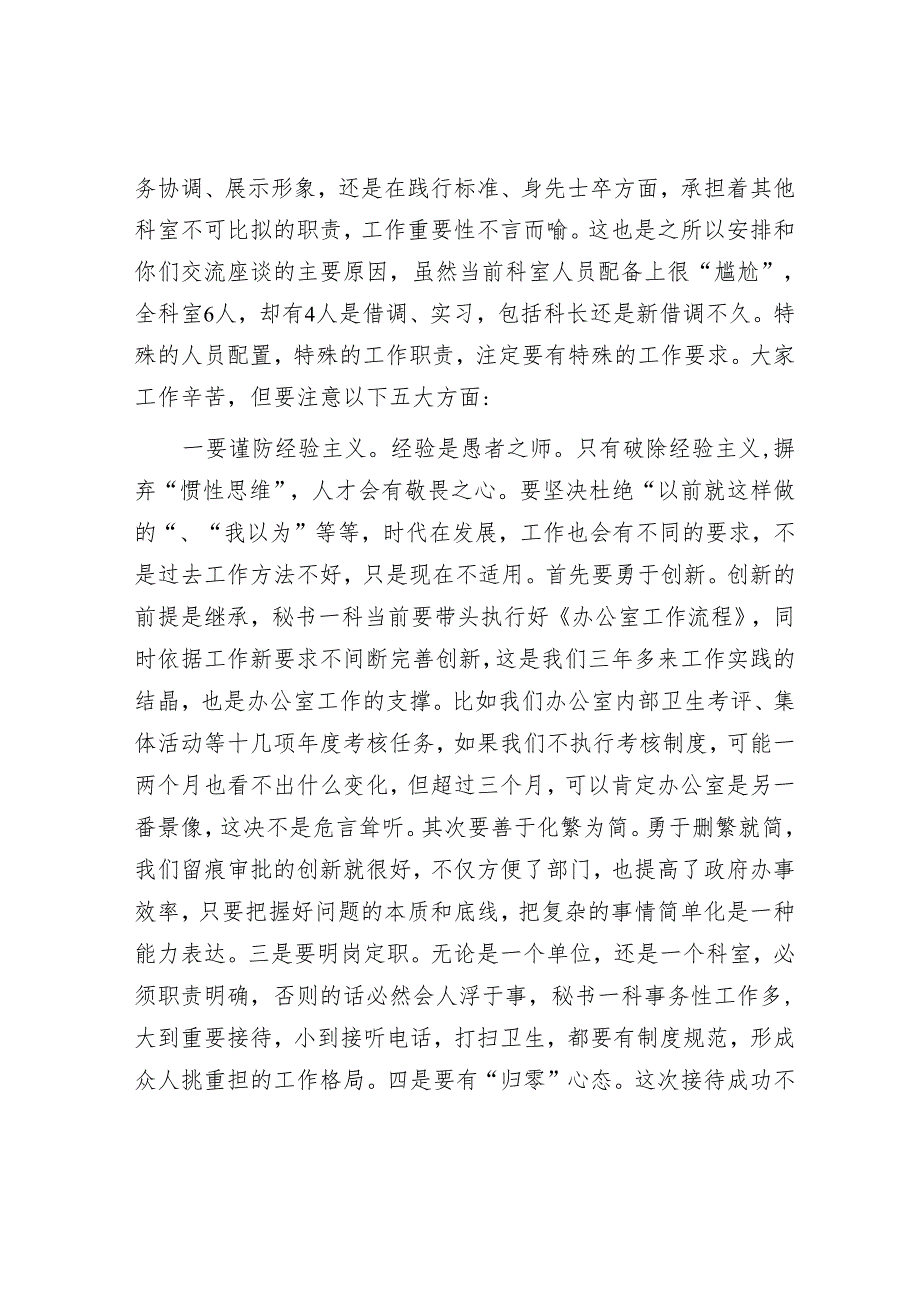 务协调、展示形象，还是在践行标准、身先士卒方面，承担着其他
科室不可比拟的职责，工作重要性不言而喻。这也是之所以安排和
你们交流座谈的主要原因，虽然当前科室人员配备上很“尴尬”，
全科室6人，却有4人是借调、实习，包括科长还是新借调不久。特
殊的人员配置，特殊的工作职责，注定要有特殊的工作要求。大家
工作辛苦，但要注意以下五大方面:
一要谨防经验主义。经验是愚者之师。只有破除经验主义,摒
弃“惯性思维”，人才会有敬畏之心。要坚决杜绝“以前就这样做
的“、“我以为”等等，时代在发展，工作也会有不同的要求，不
是过去工作方法不好，只是现在不适用。首先要勇于创新。创新的
前提是继承，秘书一科当前要带头执行好《办公室工作流程》，同
时依据工作新要求不间断完善创新,这是我们三年多来工作实践的
结晶，也是办公室工作的支撑。比如我们办公室内部卫生考评、集
体活动等十几项年度考核任务，如果我们不执行考核制度，可能一
两个月也看不出什么变化，但超过三个月，可以肯定办公室是另一
番景像，这决不是危言耸听。其次要善于化繁为简。勇于删繁就简，
我们留痕审批的创新就很好，不仅方便了部门，也提高了政府办事
效率，只要把握好问题的本质和底线，把复杂的事情简单化是一种
能力表达。三是要明岗定职。无论是一个单位，还是一个科室，必
须职责明确，否则的话必然会人浮于事，秘书一科事务性工作多，
大到重要接待，小到接听电话，打扫卫生，都要有制度规范，形成
众人挑重担的工作格局。四是要有“归零”心态。这次接待成功不